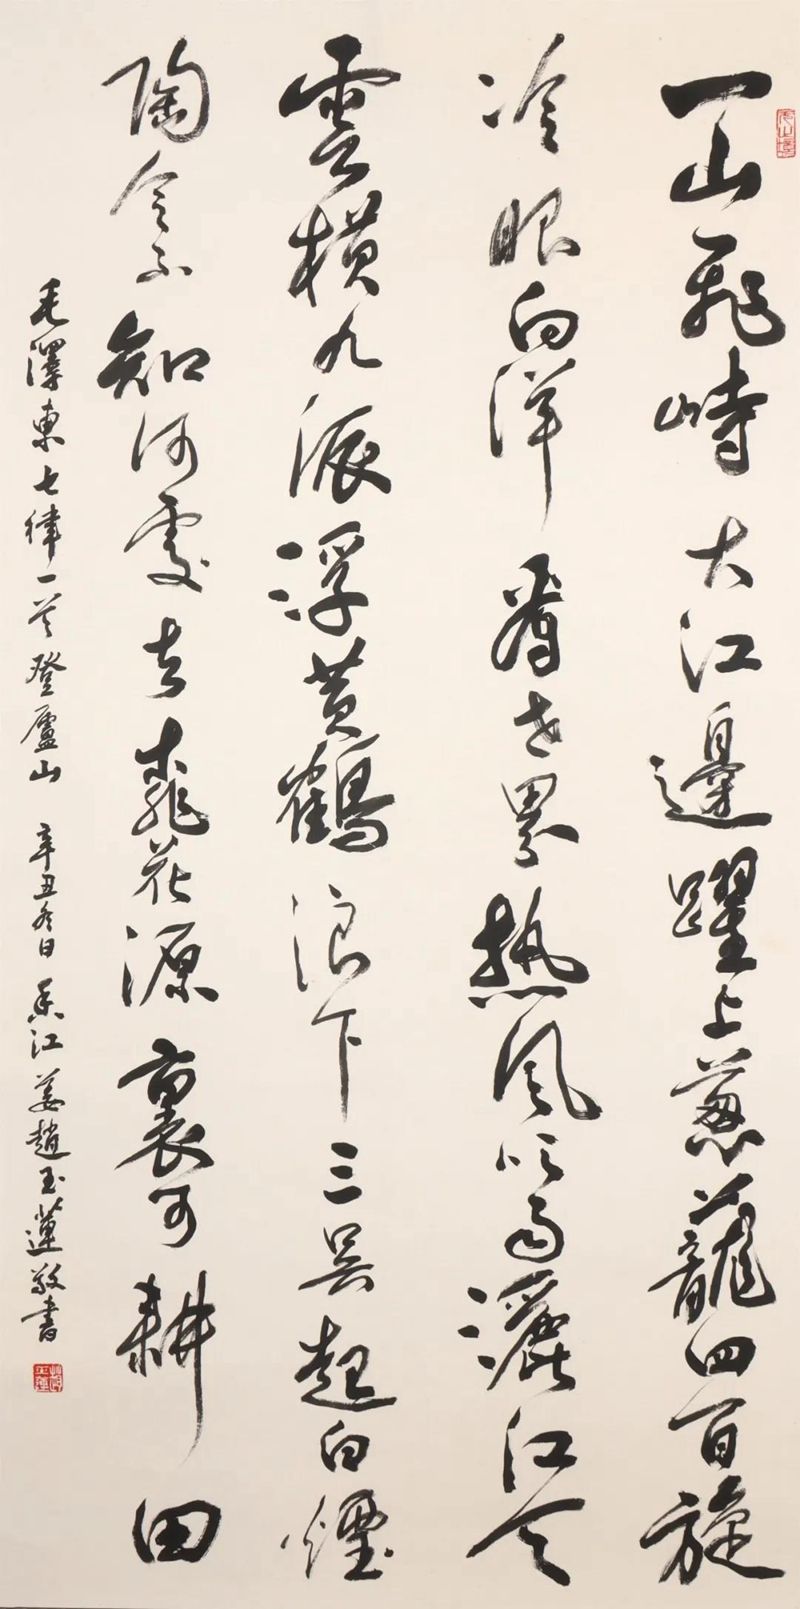 一山飛峙大江邊躍上葱蘢四百旋
冷眼向洋看世界熱風吹雨灑江天
雲横九派浮黄鶴浪下三吳起白煙
陶令不知何處去桃花源裏可耕田
毛澤東七律一首登廬山 辛丑冬日 香江姜趙玉蓮敬書